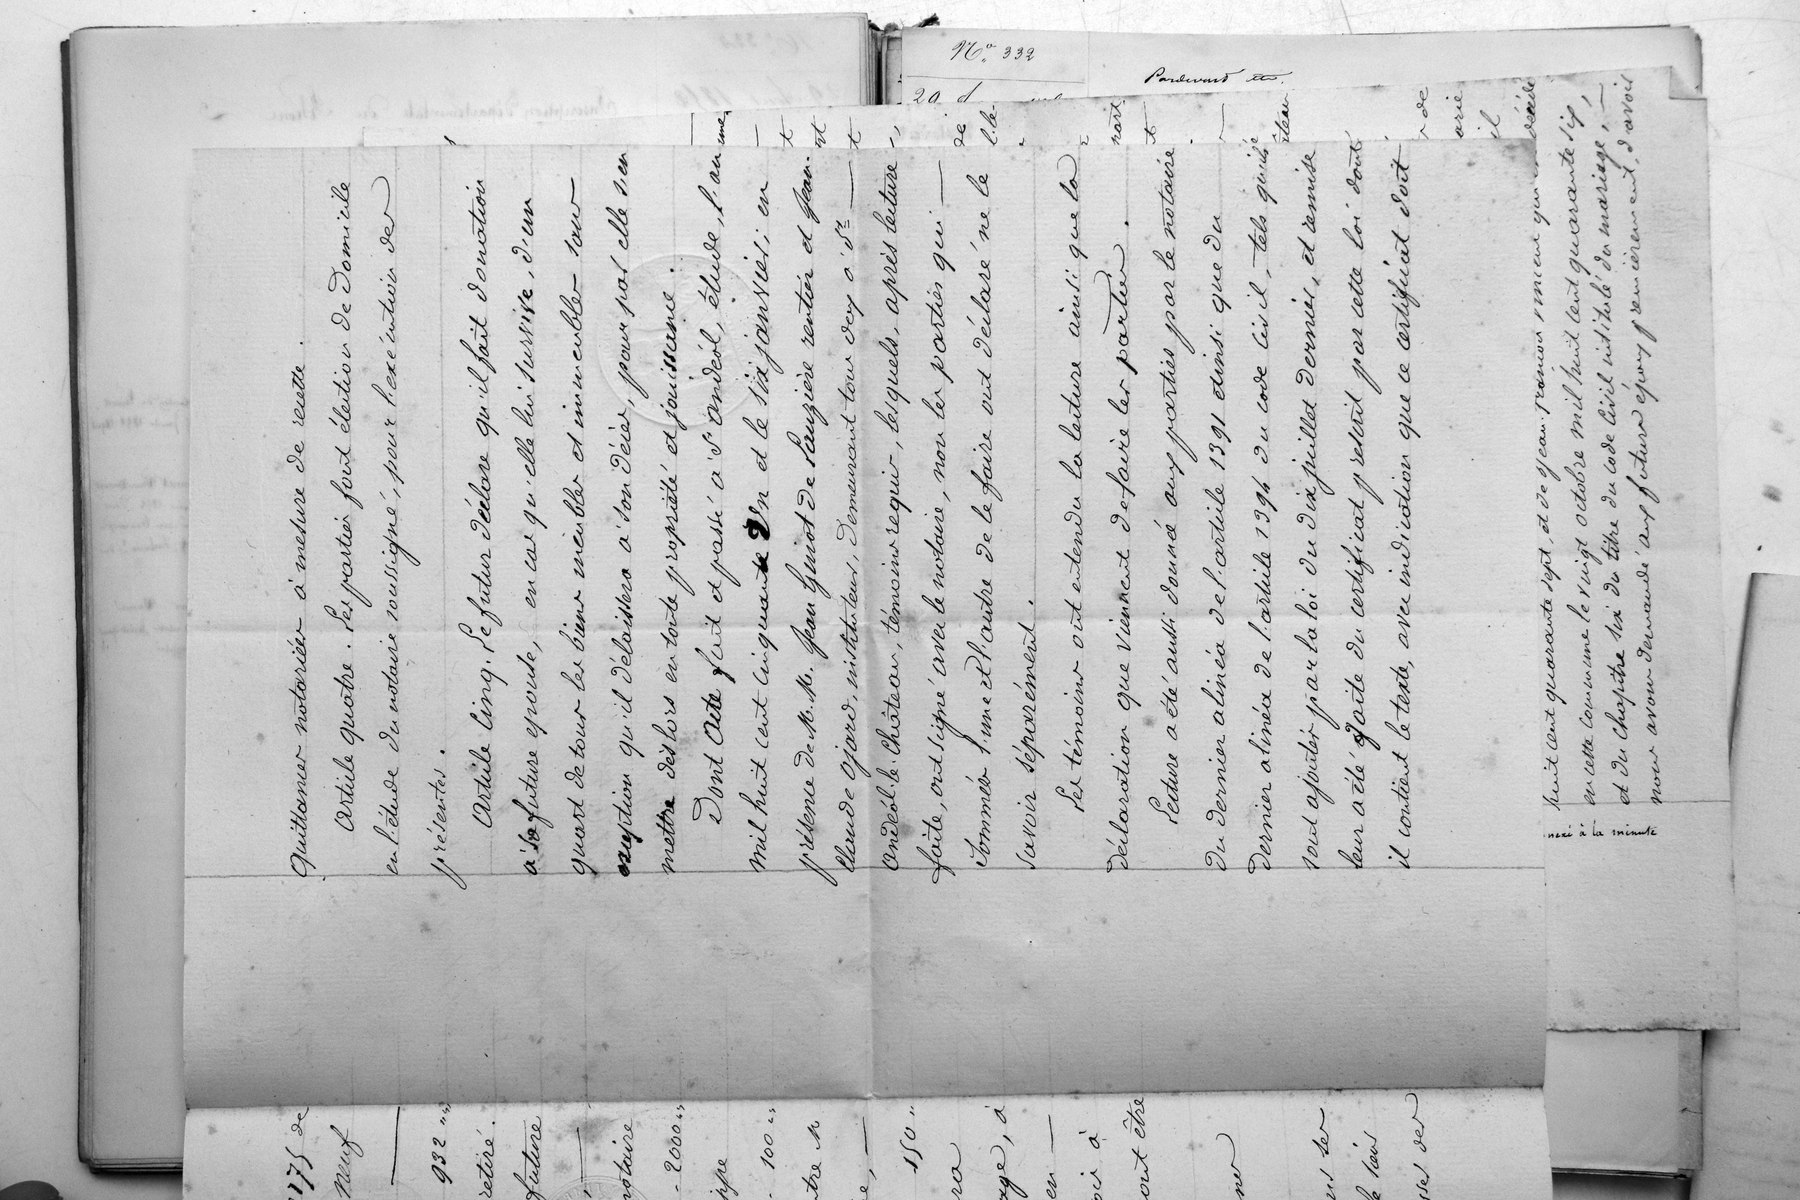 quittances notariées à mesure de recette.
Article quatre. Les parties font élection de domicile
en l'étude du notaire soussigné, pour l'exécution des
présentes.
Article cinq. Le futur déclare qu'il fait donation
à sa future épouse, en cas qu'elle lui survive, d'un
quart de tous les biens meubles et immeubles sous
exception qu'il délaissera à son décès, pour par elle s'en
mettre dès lors en toute propriété et jouissance.
Dont acte fait et passé à St andéol, étude, l'an
mil huit cent cinquante Un et le six janvier; en
présence de M.M. Jean Guinot de Lauzière rentier et Jean
Claude ajard, instituteur, demeurant tous deux à St
andéol-le-château, témoins requis, lesquels, après lecture
faite, ont signé avec le notaire, non les parties qui
sommées l'une et l'autre de le faire ont déclaré ne le
savoir séparément.
Les témoins ont entendu la lecture ainsi que la
déclaration que viennent de faire les parties.
Lecture a été aussi donné aux parties par le notaire
du dernier alinéa de l'article 1391 et ainsi que du
dernier alinéa de l'article 1394 du code civil, tels qu'ils
sont ajoutés par la loi du dix juillet dernier, et remise
leur a été faite du certificat prescrit par cette loi dont
il contient le texte, avec indication que ce certificat doit
No. 332
Pardevant etc.
29
huit cent quarante sept, et de Jean François
en cette commune le vingt octobre mil huit cent quarante six,
et du chapitre six du titre du code civil intitulé du mariage,
nous avons demandé aux futurs époux premièrement, d'avoir
à la minute
1175 de
neuf
932 "
retiré.
future
notaire
2000 "
100 "
150 "